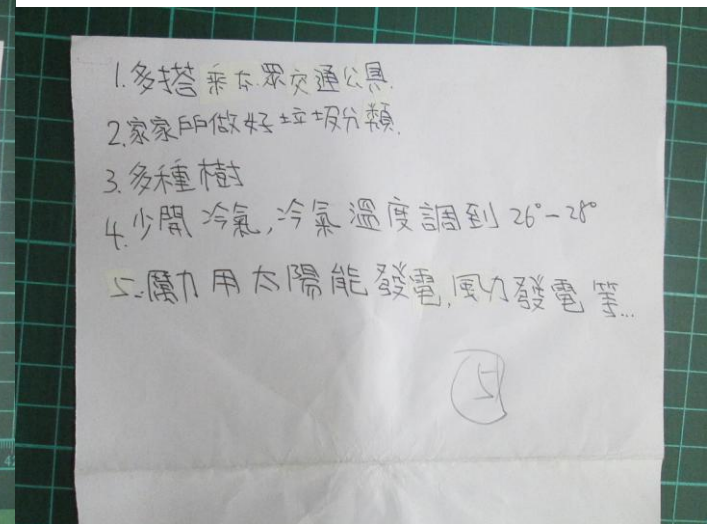 1.多搭乘大眾交通公具.
2.家家戶戶做好垃圾分類.
3.多種樹
4.少開冷氣,冷氣溫度調到26°-28°
5.勵力用太陽能發電,風力發電等...
5